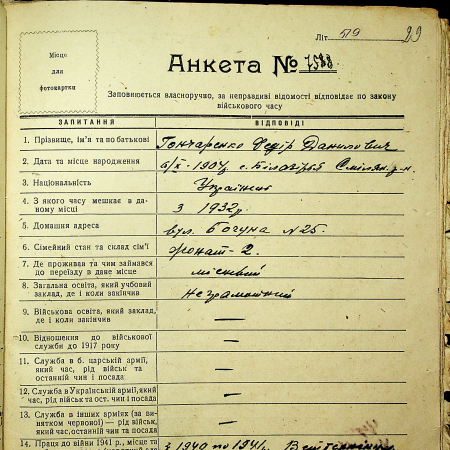 Літ. 519 29
Місце
для
фотокартки
Анкета № 7588
Заповнюється власноручно, за неправдиві відомості відповідає по закону
військового часу
ЗАПИТАННЯ ВІДПОВІДІ
1. Прізвище, ім'я та по батькові Гончаренко Федір Данилович
2. Дата та місце народження 6/X-1907р. с. Білозір'я Смілян. р-н.
3. Національність Українець
4. З якого часу мешкає в да-
ному місці З 1932р.
5. Домашня адреса вул. Богуна №25.
6. Сімейний стан та склад сім'ї жонат-2.
7. Де проживав та чим займався
до переїзду в дане місце місцевий
8. Загальна освіта, який учбовий
заклад, де і коли закінчив Неграмотний
9. Військова освіта, який заклад,
де і коли закінчив —
10. Відношення до військової
служби до 1917 року —
11. Служба в б. царській армії,
який час, рід військ та
останній чин і посада —
12. Служба в Українській армії, який
час, рід військ та ост. чин і посада —
13. Служба в інших арміях (за ви-
нятком червоної) — рід військ,
який час, останній чин та посада —
14. Праця до війни 1941 р., місце та
З 1940 по 1941р.